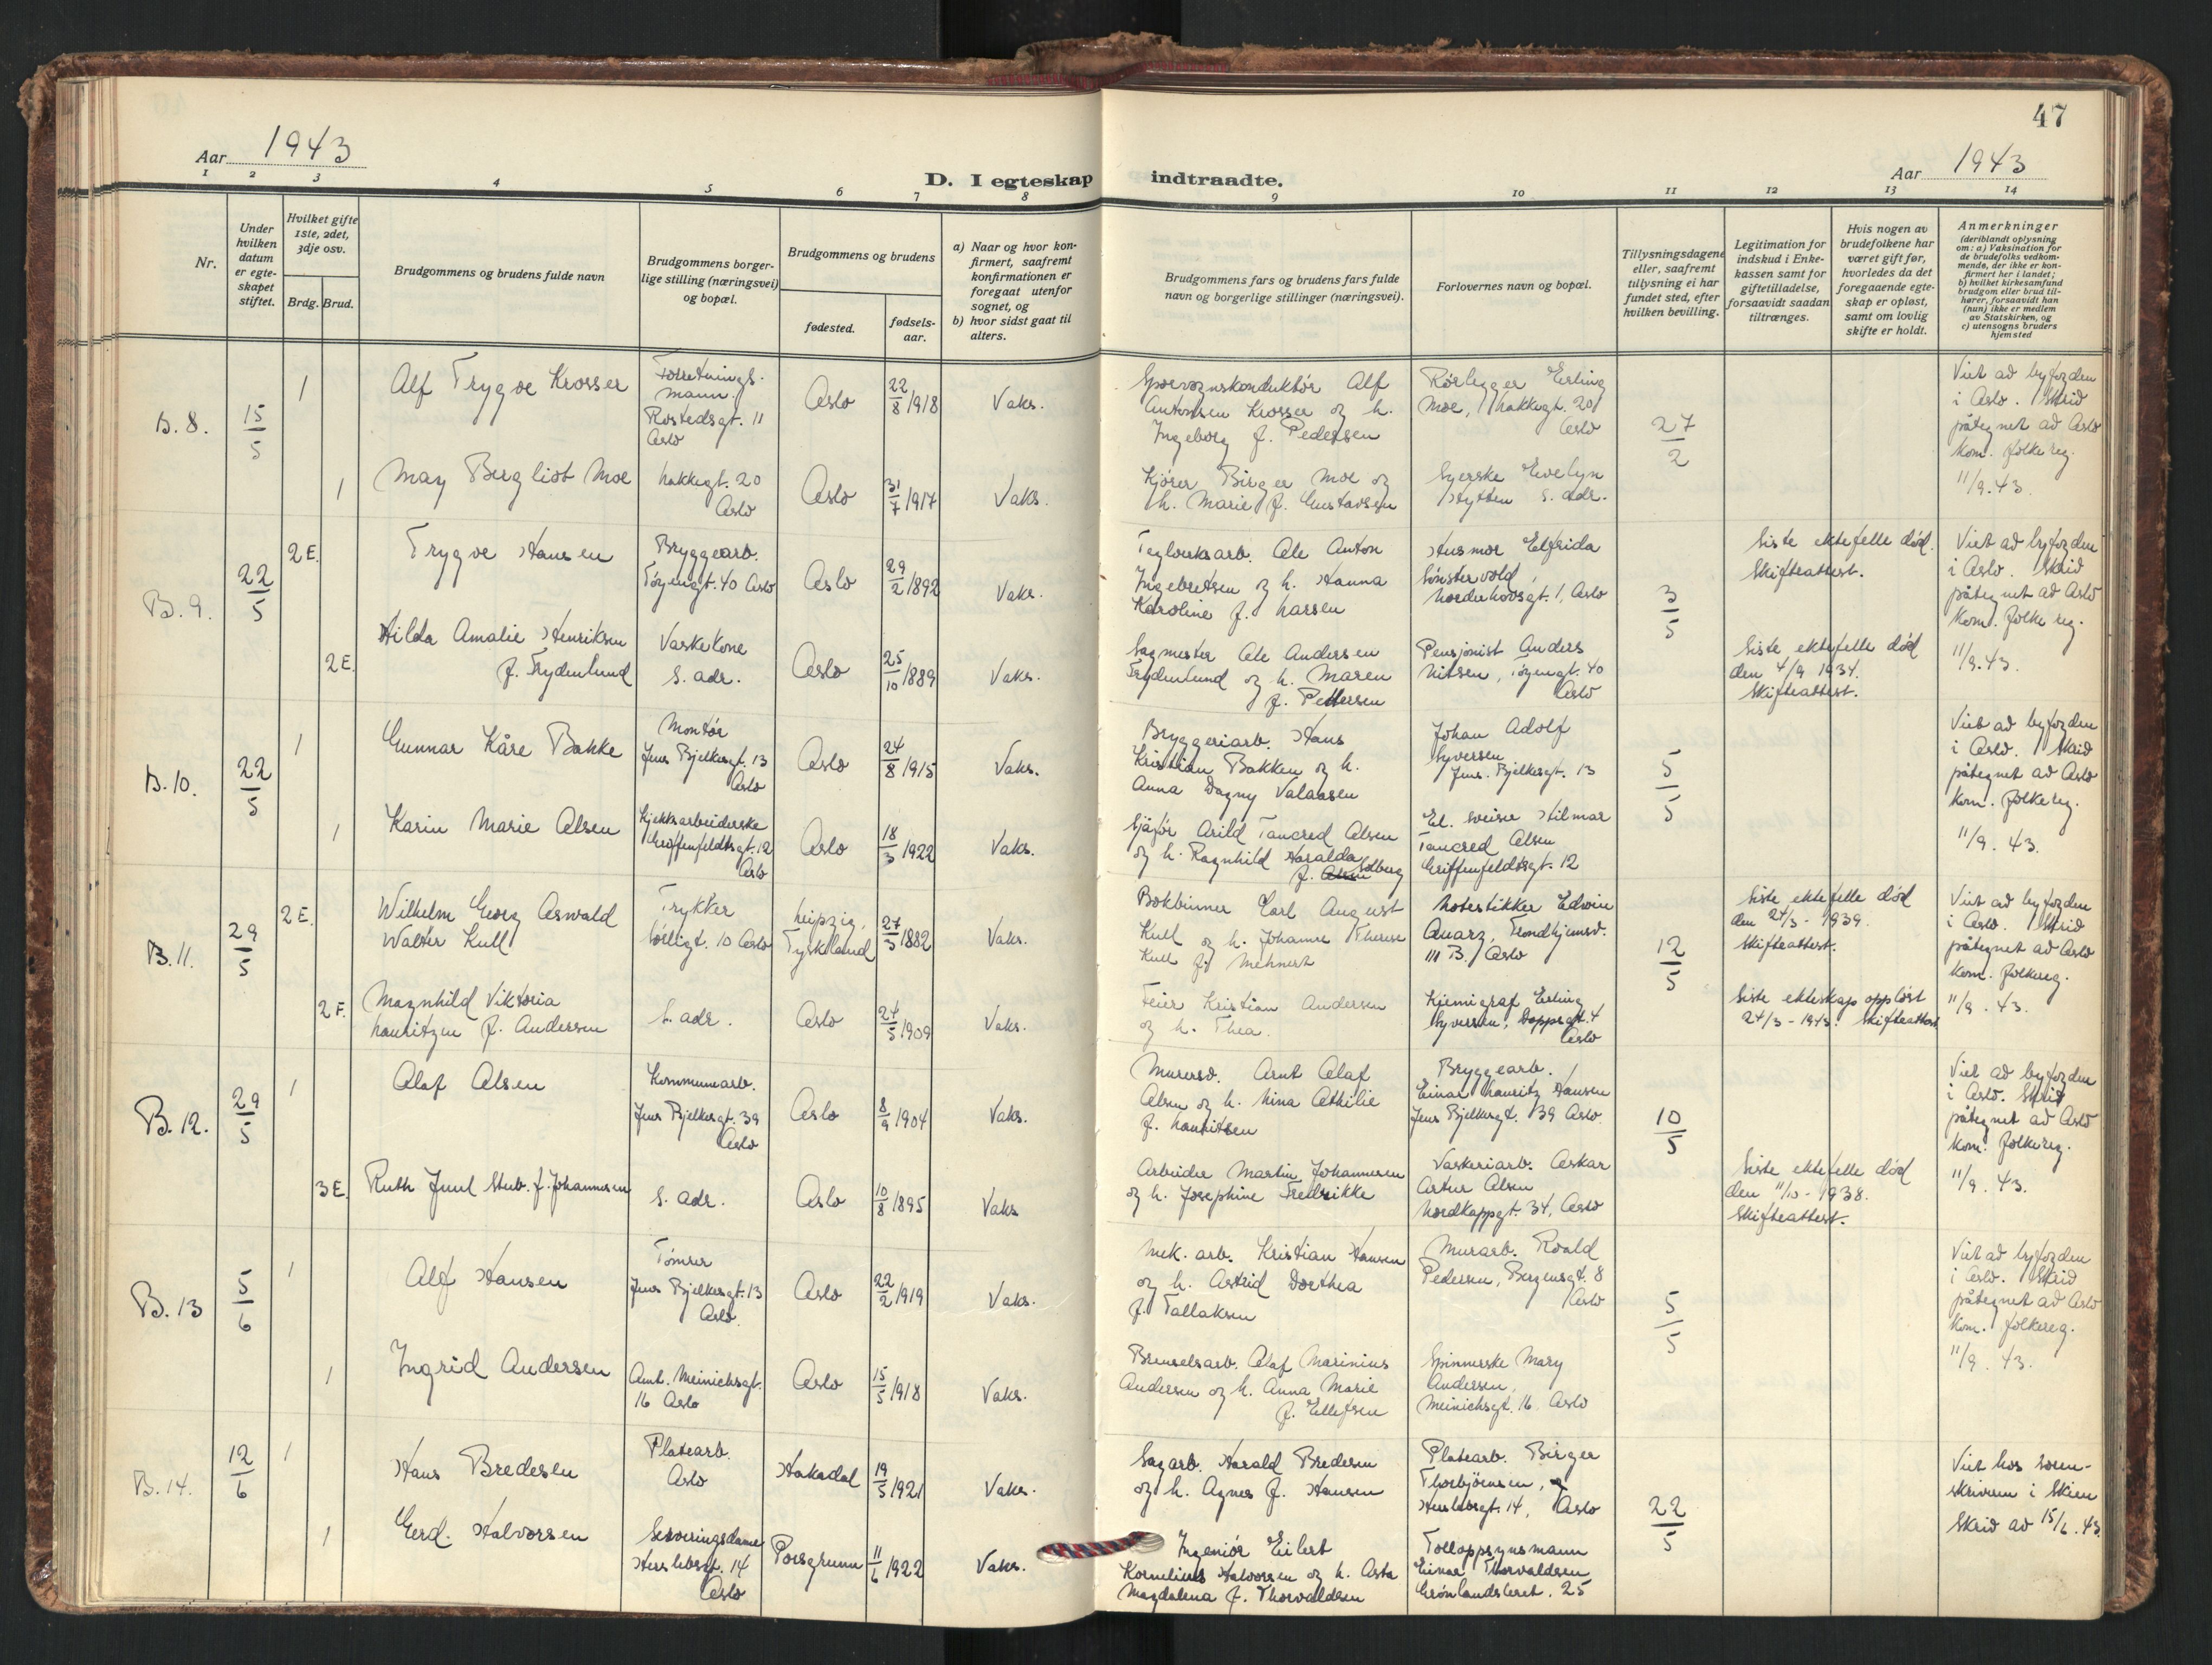 47
Aar 1943
Aar 1943
D. I egteskap indtraadte.
1 2 3 4 5 6 7 8 9 10 11 12 13 14
Nr.
Under
hvilken
datum
er egte-
skapet
stiftet.
Hvilket gifte
1ste, 2det,
3dje osv.
Brdg. Brud.
Brudgommens og brudens fulde navn
Brudgommens borger-
lige stilling (næringsvei)
og bopæl.
Brudgommens og brudens
fødested.
fødsels-
aar.
a) Naar og hvor kon-
firmert, saafremt
konfirmationen er
foregaat utenfor
sognet, og
b) hvor sidst gaat til
alters.
Brudgommens fars og brudens fars fulde
navn og borgerlige stillinger (næringsvei).
Forlovernes navn og bopæl.
Tillysningsdagene
eller, saafremt
tillysning ei har
fundet sted, efter
hvilken bevilling.
Legitimation for
indskud i Enke-
kassen samt for
giftetilladelse,
forsaavidt saadan
tiltrænges.
Hvis nogen av
brudefolkene har
været gift før,
hvorledes da det
foregaaende egte-
skap er opløst,
samt om lovlig
skifte er holdt.
Anmerkninger
(deriblandt oplysning
om: a) Vaksination for
de brudefolks vedkom-
mende, der ikke er kon-
firmert her i landet;
b) hvilket kirkesamfund
brudgom eller brud til-
hører, forsaavidt han
(hun) ikke er medlem
av Statskirken, og
c) utensogns bruders
hjemsted
B. 8.
15/5
1
Alf Trygve Krosser
Forretnings-
mann.
Rostedsgt. 11
Oslo
Oslo
22/8 1918
Vaks.
Sporvognskonduktör Alf
Antonsen Krosser og h.
Ingeborg f. Pedersen
Rörlegger Erling
Moe, Lakkegt. 20
Oslo
27/2
Viet av byfogden
i Oslo. Skriv
påtegnet av Oslo
Kom. folkereg.
11/9. 43.
1
May Bergliot Moe
Lakkegt. 20
Oslo
Oslo
31/7 1917
Vaks.
Kjörer Birger Moe og
h. Marie f. Gustavsen
Syerske Evelyn
Hytten s. adr.
B. 9.
22/5
2 E.
Trygve Hansen
Bryggearb.
Töyengt. 40 Oslo
Oslo
29/2 1892
Vaks.
Teglverksarb. Ole Anton
Ingebretsen og h. Hanna
Karoline f. Larsen
Husmor Elfrida
Sönstervold
Norderhovsgt. 1, Oslo
3/5
Siste ektefelle död.
Skifteattest.
Viet av byfogden
i Oslo. Skriv
påtegnet av Oslo
Kom. folkereg.
11/9. 43.
2 E.
Hilda Amalie Henriksen
f. Frydenlund
Vaskekone
s. adr.
Oslo
25/10 1889
Vaks.
Sagmester Ole Andersen
Frydenlund og h. Maren
f. Pettersen
Pensjonist Anders
Nilsen, Töyengt. 40
Oslo
Siste ektefelle död
den 4/9 1934.
Skifteattest.
B. 10.
22/5
1
Gunnar Kåre Bakke
Montör
Jens Bjelkesgt. 13
Oslo
Oslo
24/8 1915
Vaks.
Bryggeriarb. Hans
Kristian Bakken og h.
Anna Dagny Valaasen
Johan Adolf
Syversen
Jens Bjelkesgt. 13
5/5
Viet av byfogden
i Oslo. Skriv
påtegnet av Oslo
Kom. folkereg.
11/9. 43.
1
Karin Marie Olsen
Kjeksarbeiderske
Griffenfeldtsgt. 12
Oslo
Oslo
18/3 1922
Vaks.
Sjåför Arild Tancred Olsen
og h. Ragnhild Haralda
f. Solberg
El. sveiser Hilmar
Tancred Olsen
Griffenfeldtsgt. 12
B. 11.
29/5
2 E.
Wilhelm Georg Oswald
Walter Kull
Trykker
Sörligt. 10 Oslo
Leipzig,
Tyskeland
27/3 1882
Vaks.
Bokbinner Carl August
Kull og h. Johanne Therese
Kull f. Mehnert
Notestikker Edwin
Quarz, Trondhjemsv.
111 B. Oslo
12/5
Siste ektefelle död
den 24/3 - 1939.
Skifteattest.
Viet av byfogden
i Oslo. Skriv
påtegnet av Oslo
Kom. folkereg.
11/9. 43.
2 F.
Magnhild Viktoria
Lauritzen f. Andersen
s. adr.
Oslo
24/5 1909
Vaks.
Feier Kristian Andersen
og h. Thea.
Kjemigraf Erling
Syversen, Doppsgt. 4
Oslo
Siste ekteskap opplöst
24/3 - 1943. Skifteattest
B. 12.
29/5
1
Olaf Olsen
Kommunearb.
Jens Bjelkesgt. 39
Oslo
Oslo
8/9 1904
Vaks.
Murersv. Arnt Olaf
Olsen og h. Nina Othilie
f. Lauritsen
Bryggearb.
Einar Lauritz Hansen
Jens Bjelkesgt. 39 Oslo.
10/5
Viet av byfogden
i Oslo. Skriv
påtegnet av Oslo
Kom. folkereg.
11/9. 43.
3 E.
Ruth Juul Stub. f. Johannesen
s. adr.
Oslo
10/8 1895
Vaks
Arbeider Martin Johannesen
og h. Josephine Fredrikke
Vaskeriarb. Oskar
Artur Olsen
Nordkappgt. 34, Oslo
Siste ektefelle död
den 11/10 - 1938.
Skifteattest.
B. 13
5/6
1
Alf Hansen
Tömrer
Jens Bjelkesgt. 13
Oslo.
Oslo
22/2 1919
Vaks.
Mek. arb. Kristian Hansen
og h. Astrid Dorthea
f. Tallaksen
Murarb. Roald
Pedersen, Bergensgt. 8
Oslo
5/5
Viet av byfogden
i Oslo. Skriv
påtegnet av Oslo
Kom. folkereg.
11/9. 43.
1
Ingrid Andersen
Amt. Meinichsgt.
16 Oslo
Oslo
15/5 1918
Vaks.
Brenselsarb. Olaf Marinius
Andersen og h. Anna Marie
f. Ellefsen
Spinnerske Mary
Andersen,
Meinichsgt. 16. Oslo
B. 14.
12/6
1
Hans Bredesen
Platearb.
Oslo
Hakadal
19/5 1921
Vaks.
Sagarb. Harald Bredesen
og h. Agnes f. Hansen
Platearb. Birger
Thorbjörnsen,
Herslebsgt. 14, Oslo
22/5
Viet hos soren-
skriveren i Skien
Skriv av 15/6. 43.
1
Gerd. Halvorsen
Serveringsdame
Herslebsgt. 14
Oslo
Porsgrunn
11/6 1922
Vaks.
Ingeniör Eilert
Kornelius Halvorsen og h. Asta
Magdalena f. Thorvaldsen
Tolloppsynsmann
Einar Thorvaldsen
Grönlandsleret. 25